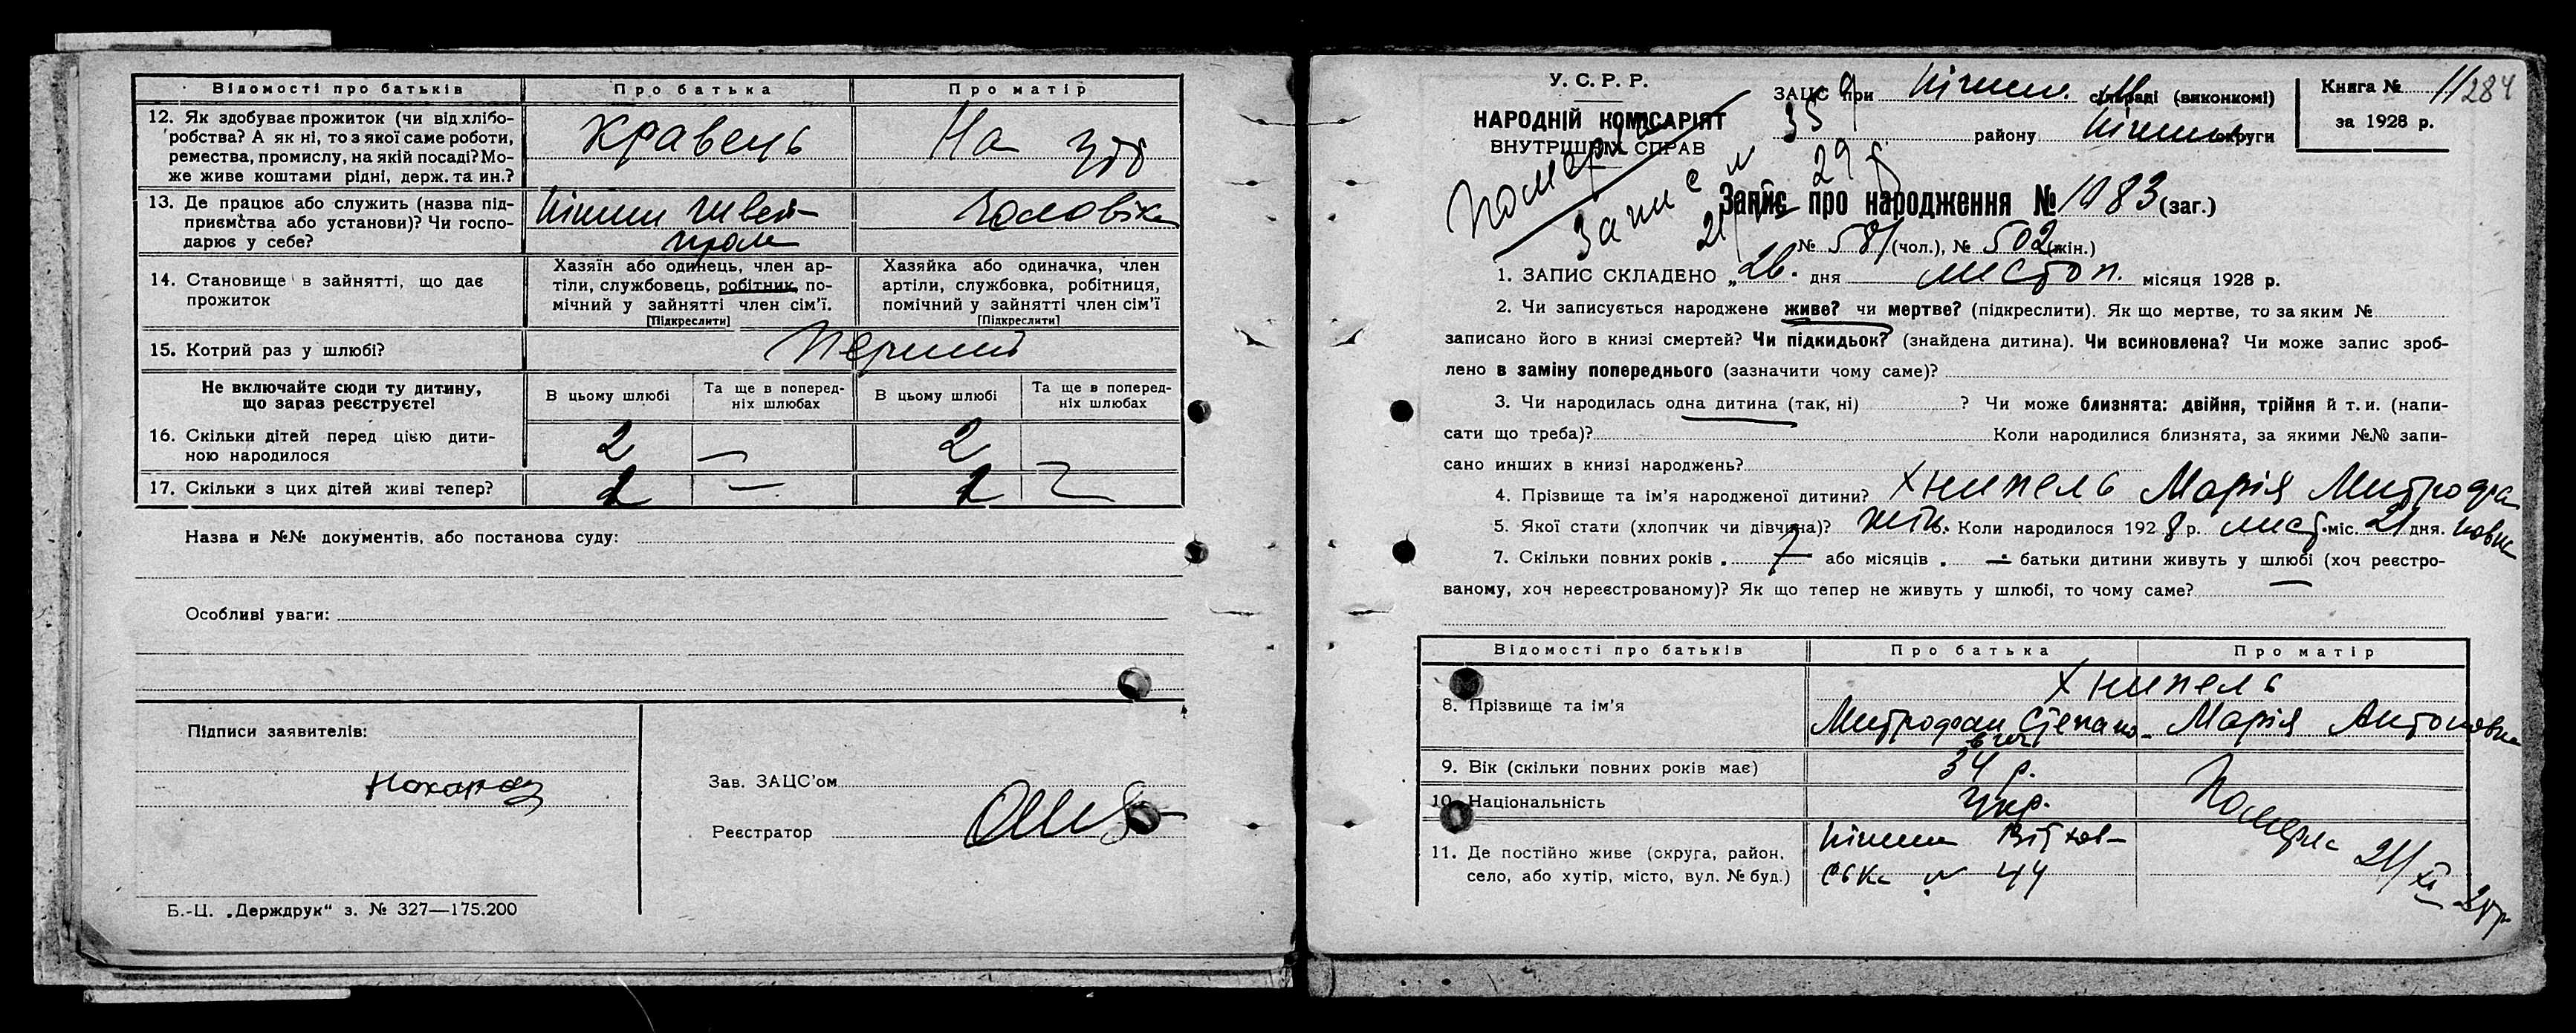 Відомості про батьків Про батька Про матір
12. Як здобуває прожиток (чи від хлібо-
робства? А як ні, то з якої саме роботи,
ремества, промислу, на якій посаді? Мо-
же живе коштами рідні, держ. та ин.?
Кравець На
13. Де працює або служить (назва під-
приємства або установи)? Чи госпо-
дарює у себе?
швей-
пром
Чоловіка
14. Становище в зайнятті, що дає
прожиток
Хазяїн або одинець, член ар-
тіли, службовець, робітник, по-
мічний у зайнятті член сім'ї.
[Підкреслити]
Хазяйка або одиначка, член
артіли, службовка, робітниця,
помічний у зайнятті член сім'ї
[Підкреслити]
15. Котрий раз у шлюбі? Перший
Не включайте сюди ту дитину,
що зараз реєструєте!
В цьому шлюбі
Та ще в поперед-
ніх шлюбах
В цьому шлюбі
Та ще в поперед-
ніх шлюбах
16. Скільки дітей перед цією дити-
ною народилося
2 — 2
17. Скільки з цих дітей живі тепер? 2 — 2 —
Назва и №№ документів, або постанова суду:
Особливі уваги:
Підписи заявителів:
Зав. ЗАЦС'ом
Реєстратор
Б.-Ц. „Держдрук“ з. № 327—175.200
У. С. Р. Р.
НАРОДНІЙ КОМІСАРІЯТ
ВНУТРІШНІХ СПРАВ
ЗАЦС при сільраді (виконкомі)
району округи
Книга № 11 284
за 1928 р.
Померла
Запис №
Запис про народження № 1083 (заг.)
№ 581 (чол.), № 502 (жін.)
1. ЗАПИС СКЛАДЕНО „26. дня листоп. місяця 1928 р.
2. Чи записується народжене живе? чи мертве? (підкреслити). Як що мертве, то за яким №
записано його в книзі смертей? Чи підкидьок? (знайдена дитина). Чи всиновлена? Чи може запис зроб-
лено в заміну попереднього (зазначити чому саме)?
3. Чи народилась одна дитина (так, ні) ? Чи може близнята: двійня, трійня й т. и. (напи-
сати що треба)? Коли народилися близнята, за якими №№ запи-
сано инших в книзі народжень?
4. Прізвище та ім'я народженої дитини? Хнипель Марія Митрофа
5. Якої стати (хлопчик чи дівчина)? жін. 6. Коли народилося 1928 р. лист. міс. 21 дня. новна
7. Скільки повних років 7 або місяців — батьки дитини живуть у шлюбі (хоч реєстро-
ваному, хоч нереєстрованому)? Як що тепер не живуть у шлюбі, то чому саме?
Відомості про батьків Про батька Про матір
8. Прізвище та ім'я
Хнипель
Митрофан Степано-
вич
Марія Антоновна
9. Вік (скільки повних років має) 34 р.
10. Національність Укр.
11. Де постійно живе (округа, район,
село, або хутір, місто, вул. № буд.)
№ 44
Померла 21/XI